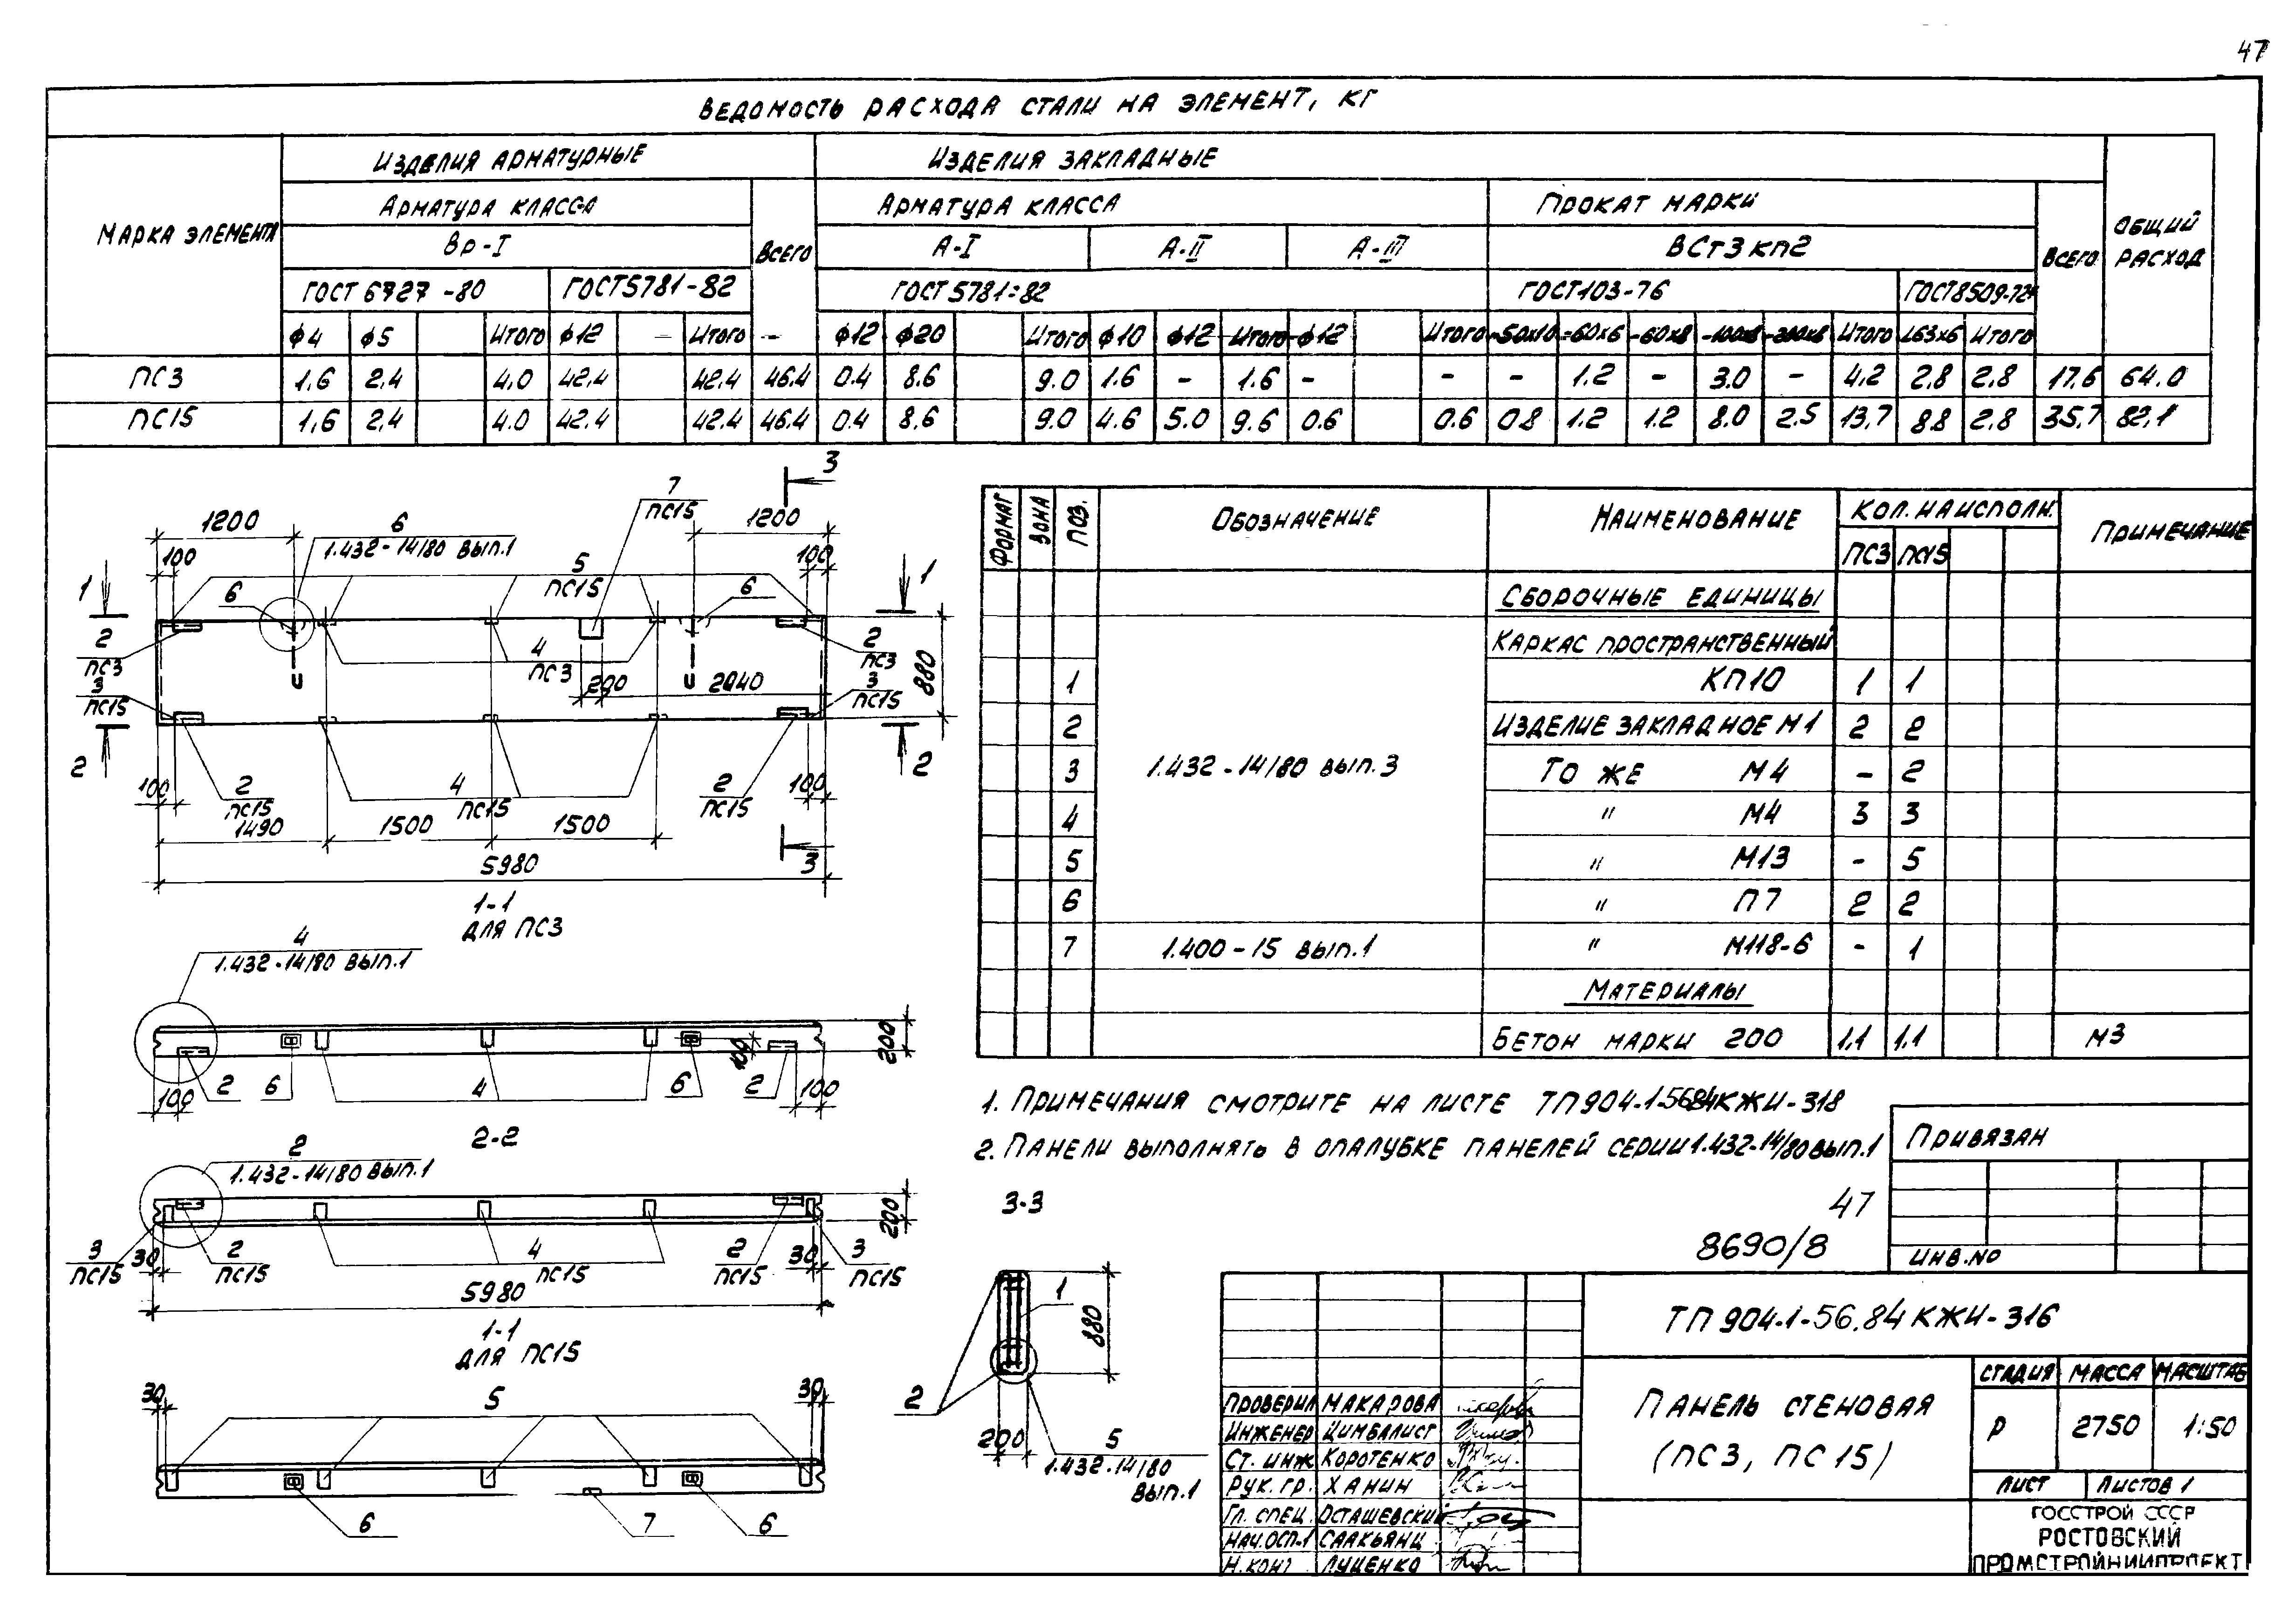 47
ВЕДОМОСТЬ РАСХОДА СТАЛИ НА ЭЛЕМЕНТ, КГ
МАРКА ЭЛЕМЕНТА
ИЗДЕЛИЯ АРМАТУРНЫЕ
ИЗДЕЛИЯ ЗАКЛАДНЫЕ
ОБЩИЙ РАСХОД
АРМАТУРА КЛАССА
ВСЕГО
АРМАТУРА КЛАССА
ПРОКАТ МАРКИ
ВСЕГО
Вр-I
А-I
А-II
А-III
ВСт3кп2
ГОСТ 6727-80
ГОСТ5781-82
ГОСТ5781-82
ГОСТ103-76
ГОСТ8509-72*
ф4 ф5 Итого ф12 - Итого - ф12 ф20 Итого ф10 ф12 Итого ф12 Итого -50х10 -60х6 -60х8 -100х8 -300х8 Итого L63х6 Итого
ПС3 1.6 2.4 4.0 42.4 42.4 46.4 0.4 8.6 9.0 1.6 - 1.6 - - - 1.2 - 3.0 - 4.2 2.8 2.8 17.6 64.0
ПС15 1.6 2.4 4.0 42.4 42.4 46.4 0.4 8.6 9.0 4.6 5.0 9.6 0.6 0.6 0.8 1.2 1.2 8.0 2.5 13.7 8.8 2.8 35.7 82.1
3
7
ПС15
1200
6
1.432-14/80 ВЫП.1
1200
100
5
ПС15
100
1
6
6
1
2
ПС3
4
ПС3
2
ПС3
880
3
ПС15
200
2040
3
ПС15
2
2
100
2
ПС15
4
ПС15
2
ПС15
100
1490
1500
1500
3
5980
1-1
ДЛЯ ПС3
4
1.432-14/80 ВЫП.1
200
100
2
6
4
6
2
100
100
2-2
2
1.432-14/80 ВЫП.1
200
3
ПС15
30
2
ПС15
4
ПС15
2
ПС15
30
3
ПС15
5980
1-1
ДЛЯ ПС15
30
5
30
6
7
6
ФОРМАТ ЗОНА ПОЗ. ОБОЗНАЧЕНИЕ НАИМЕНОВАНИЕ КОЛ. НА ИСПОЛН. ПРИМЕЧАНИЕ
ПС3 ПС15
СБОРОЧНЫЕ ЕДИНИЦЫ
КАРКАС ПРОСТРАНСТВЕННЫЙ
1 КП10 1 1
2 ИЗДЕЛИЕ ЗАКЛАДНОЕ М1 2 2
3 1.432-14/80 ВЫП.3 ТО ЖЕ М4 - 2
4 " М4 3 3
5 " М13 - 5
6 " П7 2 2
7 1.400-15 ВЫП.1 " М118-6 - 1
МАТЕРИАЛЫ
БЕТОН МАРКИ 200 1,1 1,1 М3
1. ПРИМЕЧАНИЯ СМОТРИТЕ НА ЛИСТЕ ТП904-1-56.84КЖИ-318
2. ПАНЕЛИ ВЫПОЛНЯТЬ В ОПАЛУБКЕ ПАНЕЛЕЙ СЕРИИ 1.432-14/80 ВЫП.1
3-3
1
880
2
200
5
1.432-14/80
ВЫП.1
47
8690/8
ПРИВЯЗАН
ИНВ.NO
ТП 904-1-56.84 КЖИ-316
ПАНЕЛЬ СТЕНОВАЯ
(ПС3, ПС15)
СТАДИЯ МАССА МАСШТАБ
Р 2750 1:50
ЛИСТ ЛИСТОВ 1
ГОССТРОЙ СССР
РОСТОВСКИЙ
ПРОМСТРОЙНИИПРОЕКТ
ПРОВЕРИЛ МАКАРОВА
ИНЖЕНЕР ЦИМБАЛИСТ
СТ. ИНЖ КОРОТЕНКО
РУК. ГР. ХАНИН
ГЛ. СПЕЦ. ОСТАШЕВСКИЙ
НАЧ.ОСП-1 СААКЬЯНЦ
Н.КОНТ ЛУЦЕНКО